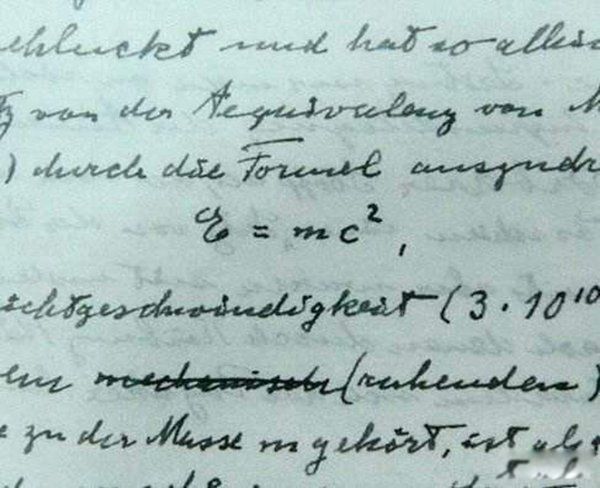 schluckt und hat so allei
tz von der Aequivalenz von M
) durch die Formel auszudr
E = mc²,
ichtgeschwindigkeit (3 . 10¹⁰
em mechanisch (ruhenden)
e zu der Masse m gehört, ist als